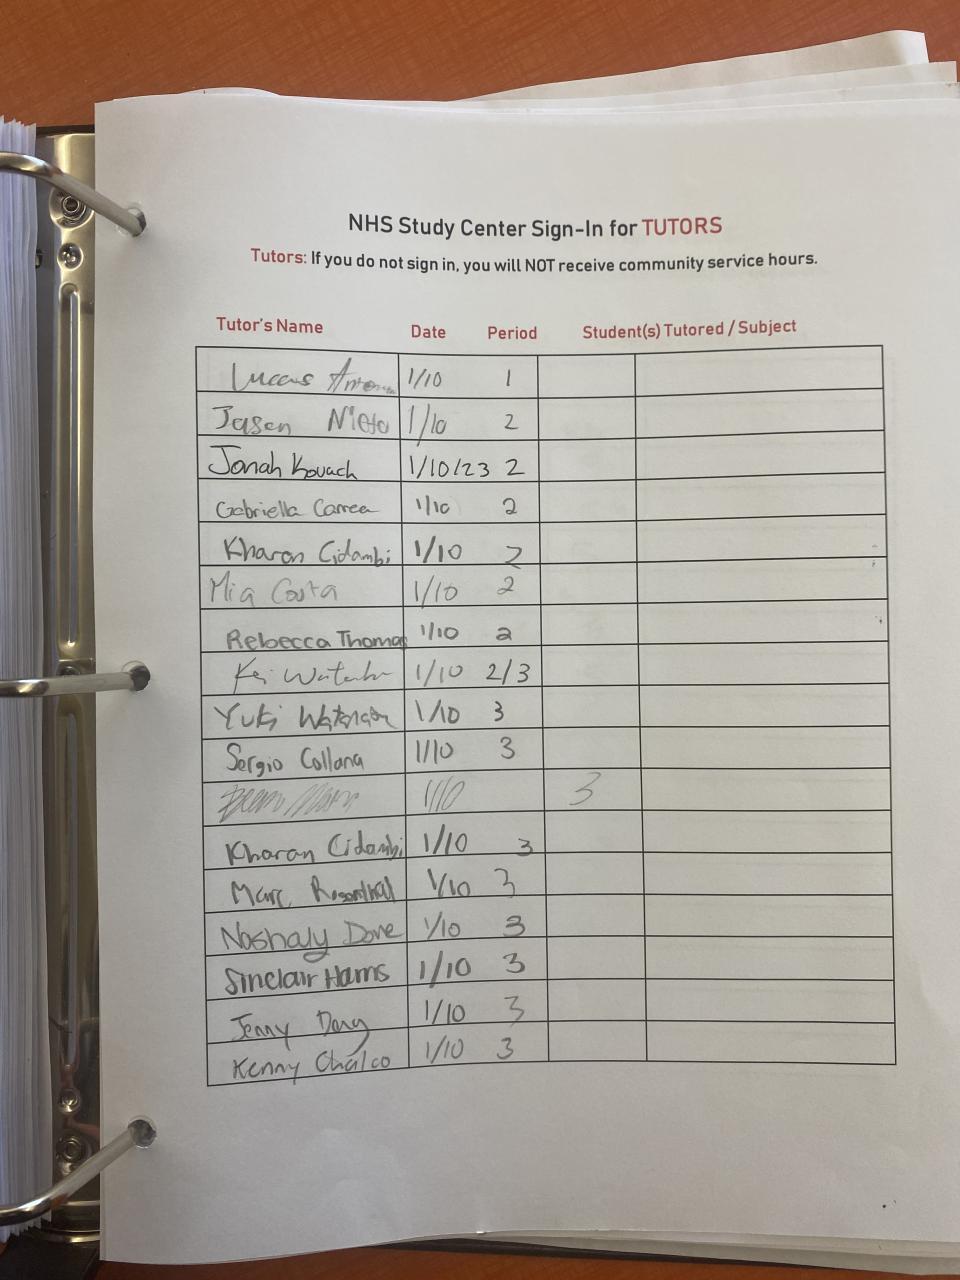 NHS Study Center Sign-In for TUTORS
Tutors: If you do not sign in, you will NOT receive community service hours.
Tutor's Name Date Period Student(s) Tutored / Subject
1/10 1
Jason Nieto 1/10 2
Jonah Kovach 1/10/23 2
Gabriella Correa 1/10 2
Kharan Cidambi 1/10 2
Mia Costa 1/10 2
Rebecca Thomas 1/10 2
Kei 1/10 2/3
Yuki 1/10 3
Sergio Collana 1/10 3
1/10 3
Kharan Cidambi 1/10 3
Marc Rosenthal 1/10 3
Noshaly Done 1/10 3
Sinclair Harris 1/10 3
Jenny 1/10 3
Kenny Chalco 1/10 3